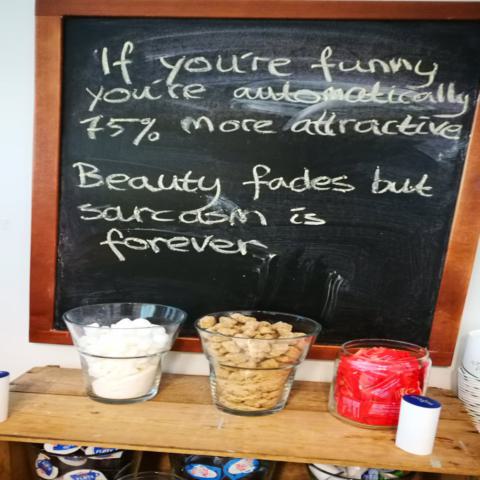 If you're funny
you're automatically
75% more attractive
Beauty fades but
sarcasm is
forever.